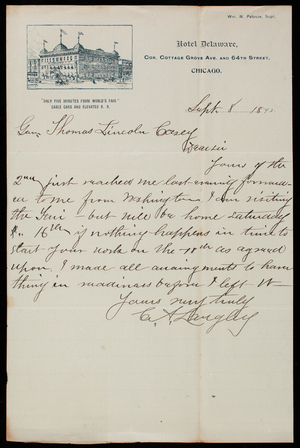 Wm. N. Pelouze, Supt.
Hotel Delaware,
Cor. Cottage Grove Ave. and 64th Street,
CHICAGO.
"ONLY FIVE MINUTES FROM WORLD'S FAIR"
CABLE CARS AND ELEVATED R. R.
Sept. 8 189
Gen Thomas Lincoln Casey
Dear sir
Yours of the
2nd just reached me last evening forward-
ed to me from Washington I am visiting
the Fair - but will be home Saturday
16th if nothing happens in time to
start your work on the 18th as agreed
upon. I made all arraingments to have
thing in readiness before I left
Yours very truly
C. A. Langley